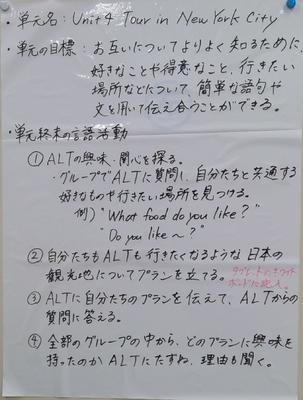 ・単元名: Unit 4 Tour in New York City
・単元の目標: お互いについてよりよく知るために、
好きなことや得意なこと、行きたい
場所などについて、簡単な語句や
文を用いて伝え合うことができる。
・単元終末の言語活動
① ALTの興味・関心を探る。
・グループでALTに質問し、自分たちと共通する
好きなものや行きたい場所を見つける。
例) "What food do you like?"
"Do you like ~?"
② 自分たちもALTも行きたくなるような 日本の
観光地についてプランを立てる。
タブレットのホワイト
ボードに記入。
③ ALTに自分たちのプランを伝えて、ALTからの
質問に答える。
④ 全部のグループの中から、どのプランに興味を
持ったのか ALTにたずね、理由も聞く。